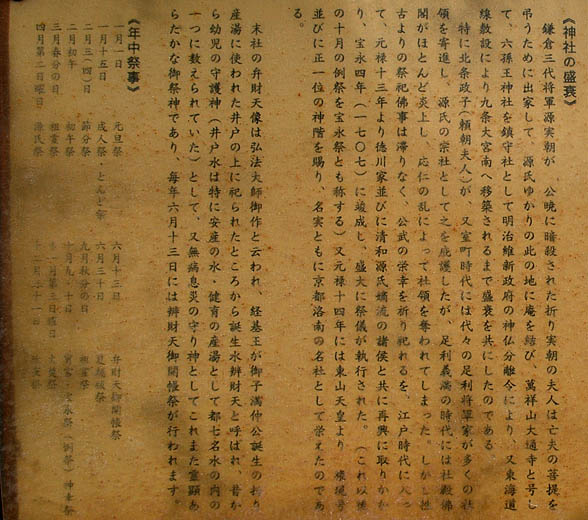 《神社の盛衰》
鎌倉三代将軍源実朝が、公暁に暗殺された折り実朝の夫人は亡夫の菩提を
弔うために出家して、源氏ゆかりの此の地に庵を結び、萬祥山大通寺と号し
て、六孫王神社を鎮守社として明治維新政府の神仏分離令により、又東海道
線敷設により九条大宮南へ移築されるまで盛衰を共にしたのである
特に北条政子(頼朝夫人)が、又室町時代には代々の足利将軍家が多くの社
領を寄進し、源氏の宗社として之を庇護したが、足利義満の時代には社殿佛
閣がほとんど炎上し、応仁の乱によって社領を奪われてしまった。しかし往
古よりの祭祀佛事は滞りなく、公武の栄幸を祈り祀れるを、江戸時代に入っ
て、元禄十三年より徳川家並びに清和源氏嫡流の諸侯と共に再興に取りかか
り、宝永四年(一七〇七)に竣成し、盛大に祭儀が執行された。(これ以後
の十月の例祭を宝永祭とも称する)又元禄十四年には東山天皇より、権現号
並びに正一位の神階を賜り、名実ともに京都洛南の名社として栄えたのであ
る。
末社の弁財天像は弘法大師御作と云われ、経基王が御子満仲公誕生の折り
産湯に使われた井戸の上に祀られたところから誕生水辨財天と呼ばれ、昔か
ら幼児の守護神(井戸水は特に安産の水・健育の産湯として都七名水の内の
一つに数えられていた)として、又無病息災の守り神としてこれまた霊顕あ
らたかな御祭神であり、毎年六月十三日には辨財天御開帳祭が行われます。
《年中祭事》
一月一日 元旦祭 六月十三日 弁財天御開帳祭
一月十五日 成人祭・とんど祭 六月三十日 夏越祓祭
二月三(四)日 節分祭 九月秋分の日 祖霊祭
二月初午 初午祭 十月九・十日 宵宮・宝永祭(例祭)神幸祭
三月春分の日 祖霊祭 十一月第三日曜日 火焚祭
四月第二日曜日 源氏祭 十二月三十一日